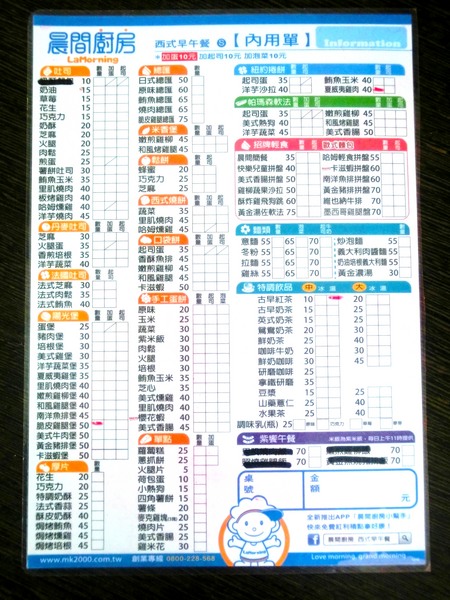 晨間廚房
LaMorning
西式早午餐 ®【內用單】
Information
*加蛋10元 加起司10元 加泡菜10元
吐司
10
奶油 15
草莓 15
花生 15
巧克力 15
奶酥 20
芝麻 20
火腿 20
肉鬆 25
煎蛋 20
薯餅吐司 30
鮪魚玉米 35
里肌燒肉 40
板烤雞肉 40
哈姆燻雞 40
洋芋燒肉 45
丹麥吐司
芝麻 30
火腿蛋 35
香煎培根 35
洋芋燒肉 55
法國吐司
法式芝麻 30
法式肉鬆 35
法式鮪魚 40
陽光堡
蛋堡 25
豬肉堡 30
培根堡 30
美式雞堡 30
洋芋蔬菜堡 35
夏威夷雞堡 35
里肌燒肉堡 40
嫩煎雞柳堡 40
和風雞腿堡 40
南洋魚排堡 45
脆皮雞腿堡 50
美式牛肉堡 50
黃金豬排堡 50
卡滋蝦堡 50
厚片
花生 20
巧克力 20
特調奶酥 25
蒜香起司 35
酥皮奶酥 40
焗烤鮪魚 45
焗烤燻雞 45
焗烤培根 45
總匯
日式總匯 50
原味總匯 60
鮪魚總匯 65
燒肉總匯 75
脆皮雞腿總匯 75
米香堡
嫩煎雞柳 40
和風雞腿 40
鬆餅
蜂蜜 20
巧克力 25
芝麻 25
西式燒餅
蔬菜 35
里肌燒肉 45
口袋餅
起司蛋 35
香酥魚排 45
嫩煎雞柳 45
和風雞腿 45
卡滋蝦 50
手工蛋餅
原味 20
玉米 25
蔬菜 30
紫米飯 30
肉鬆 30
火腿 30
培根 30
鮪魚玉米 35
芝心 35
美式燻雞 40
里肌燒肉 40
櫻花蝦 40
美式香腸 45
單點
蘿蔔糕 25
蔥抓餅 25
火腿片 5
荷包蛋 10
小熱狗 15
四角薯餅 15
薯條 20
麥克雞塊 20
燒肉片 25
美式香腸 25
雞米花 30
紐約捲餅
起司蛋 35
洋芋沙拉 40
鮪魚玉米 40
夏威夷雞 40
帕瑪森軟法
起司蛋 35
美式熱狗 40
洋芋蔬菜 45
嫩煎雞柳 45
和風雞腿 45
美式香腸 50
招牌輕食
歐式麵包
晨間簡餐 35
快樂兒童拼盤 40
美式香腸拼盤 50
雞柳蔬果沙拉 50
酥炸雞飛狗跳 60
黃金湯佐軟法 75
哈姆輕食拼盤 55
卡滋蝦拼盤 60
南洋魚排拼盤 60
黃金豬排拼盤 60
維也納牛排 70
墨西哥雞腿拼盤 80
麵類
意麵 55 65 70
冬粉 55 65 70
拉麵 55 65 70
雞絲 55 65 70
炒泡麵 55
義大利肉醬麵 55
奶油培根義大利麵 55
黃金濃湯 30
特調飲品 中 冰 溫 大 冰 溫
古早紅茶 10 20
古早奶茶 15 25
英式奶茶 15 25
鴛鴦奶茶 20 30
鮮奶茶 25 40
咖啡牛奶 20 30
鮮奶咖啡 30 45
研磨咖啡 25
拿鐵研磨 35
豆漿 15 25
山藥薏仁 25 40
水果茶 25 40
調味乳(瓶) 25
紫饗午餐
70
70
桌號
金額
元
全新推出APP「晨間廚房小幫手」
快來免費紅利積點拿好康！
晨間廚房 西式早午餐
www.mk2000.com.tw
創業專線 0800-228-568
Love morning, grand morning